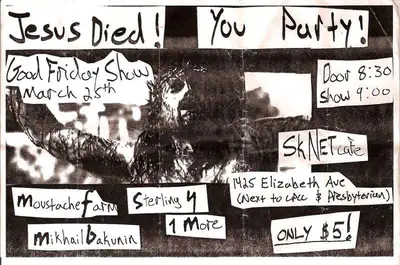 Jesus Died! You Party!
Good Friday Show
March 25th
Door 8:30
Show 9:00
SkNET cafe
1425 Elizabeth Ave
(Next to CPCC & Presbyterian)
Moustache Farm
Sterling Y
Mikhail bakunin
1 More
ONLY $5!